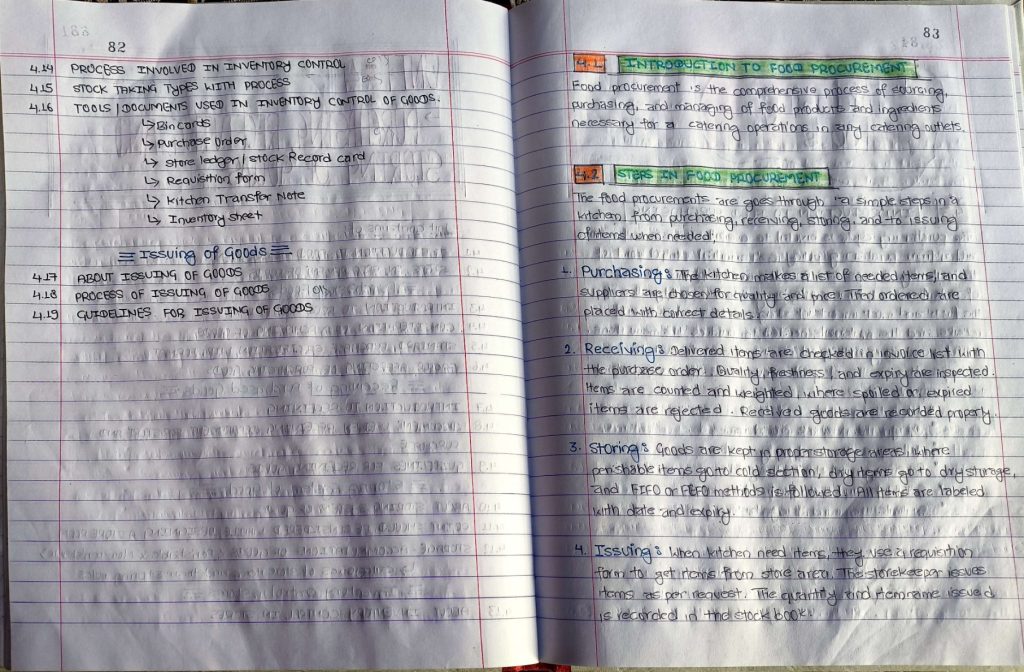 82
4.14 PROCESS INVOLVED IN INVENTORY CONTROL
4.15 STOCK TAKING TYPES WITH PROCESS
4.16 TOOLS / DOCUMENTS USED IN INVENTORY CONTROL OF GOODS.
↳ Bin cards
↳ Purchase Order
↳ Store ledger / Stock Record card
↳ Requisition form
↳ Kitchen Transfer Note
↳ Inventory sheet
Issuing of Goods
4.17 ABOUT ISSUING OF GOODS
4.18 PROCESS OF ISSUING OF GOODS
4.19 GUIDELINES FOR ISSUING OF GOODS
83
4.1 INTRODUCTION TO FOOD PROCUREMENT
Food procurement is the comprehensive process of sourcing,
purchasing, and managing of food products and ingredients
necessary for a catering operations in any catering outlets.
4.2 STEPS IN FOOD PROCUREMENT
The food procurements are goes through a simple steps in a
kitchen from purchasing, receiving, storing, and to issuing
of items when needed;
1. Purchasing: The kitchen makes a list of needed items, and
suppliers are chosen for quality and price. The ordered are
placed with correct details.
2. Receiving: Delivered items are checked in invoice list with
the purchase order. Quality, freshness, and expiry are inspected.
Items are counted and weighted, where spoiled or expired
items are rejected. Received goods are recorded properly.
3. Storing: Goods are kept in proper storage areas, where
perishable items go to cold section, dry items go to dry storage,
and FIFO or FEFO methods is followed. All items are labeled
with date and expiry.
4. Issuing: When kitchen need items, they use a requisition
form to get items from store area. The storekeeper issues
items as per request. The quantity and item name issued
is recorded in the stock book.